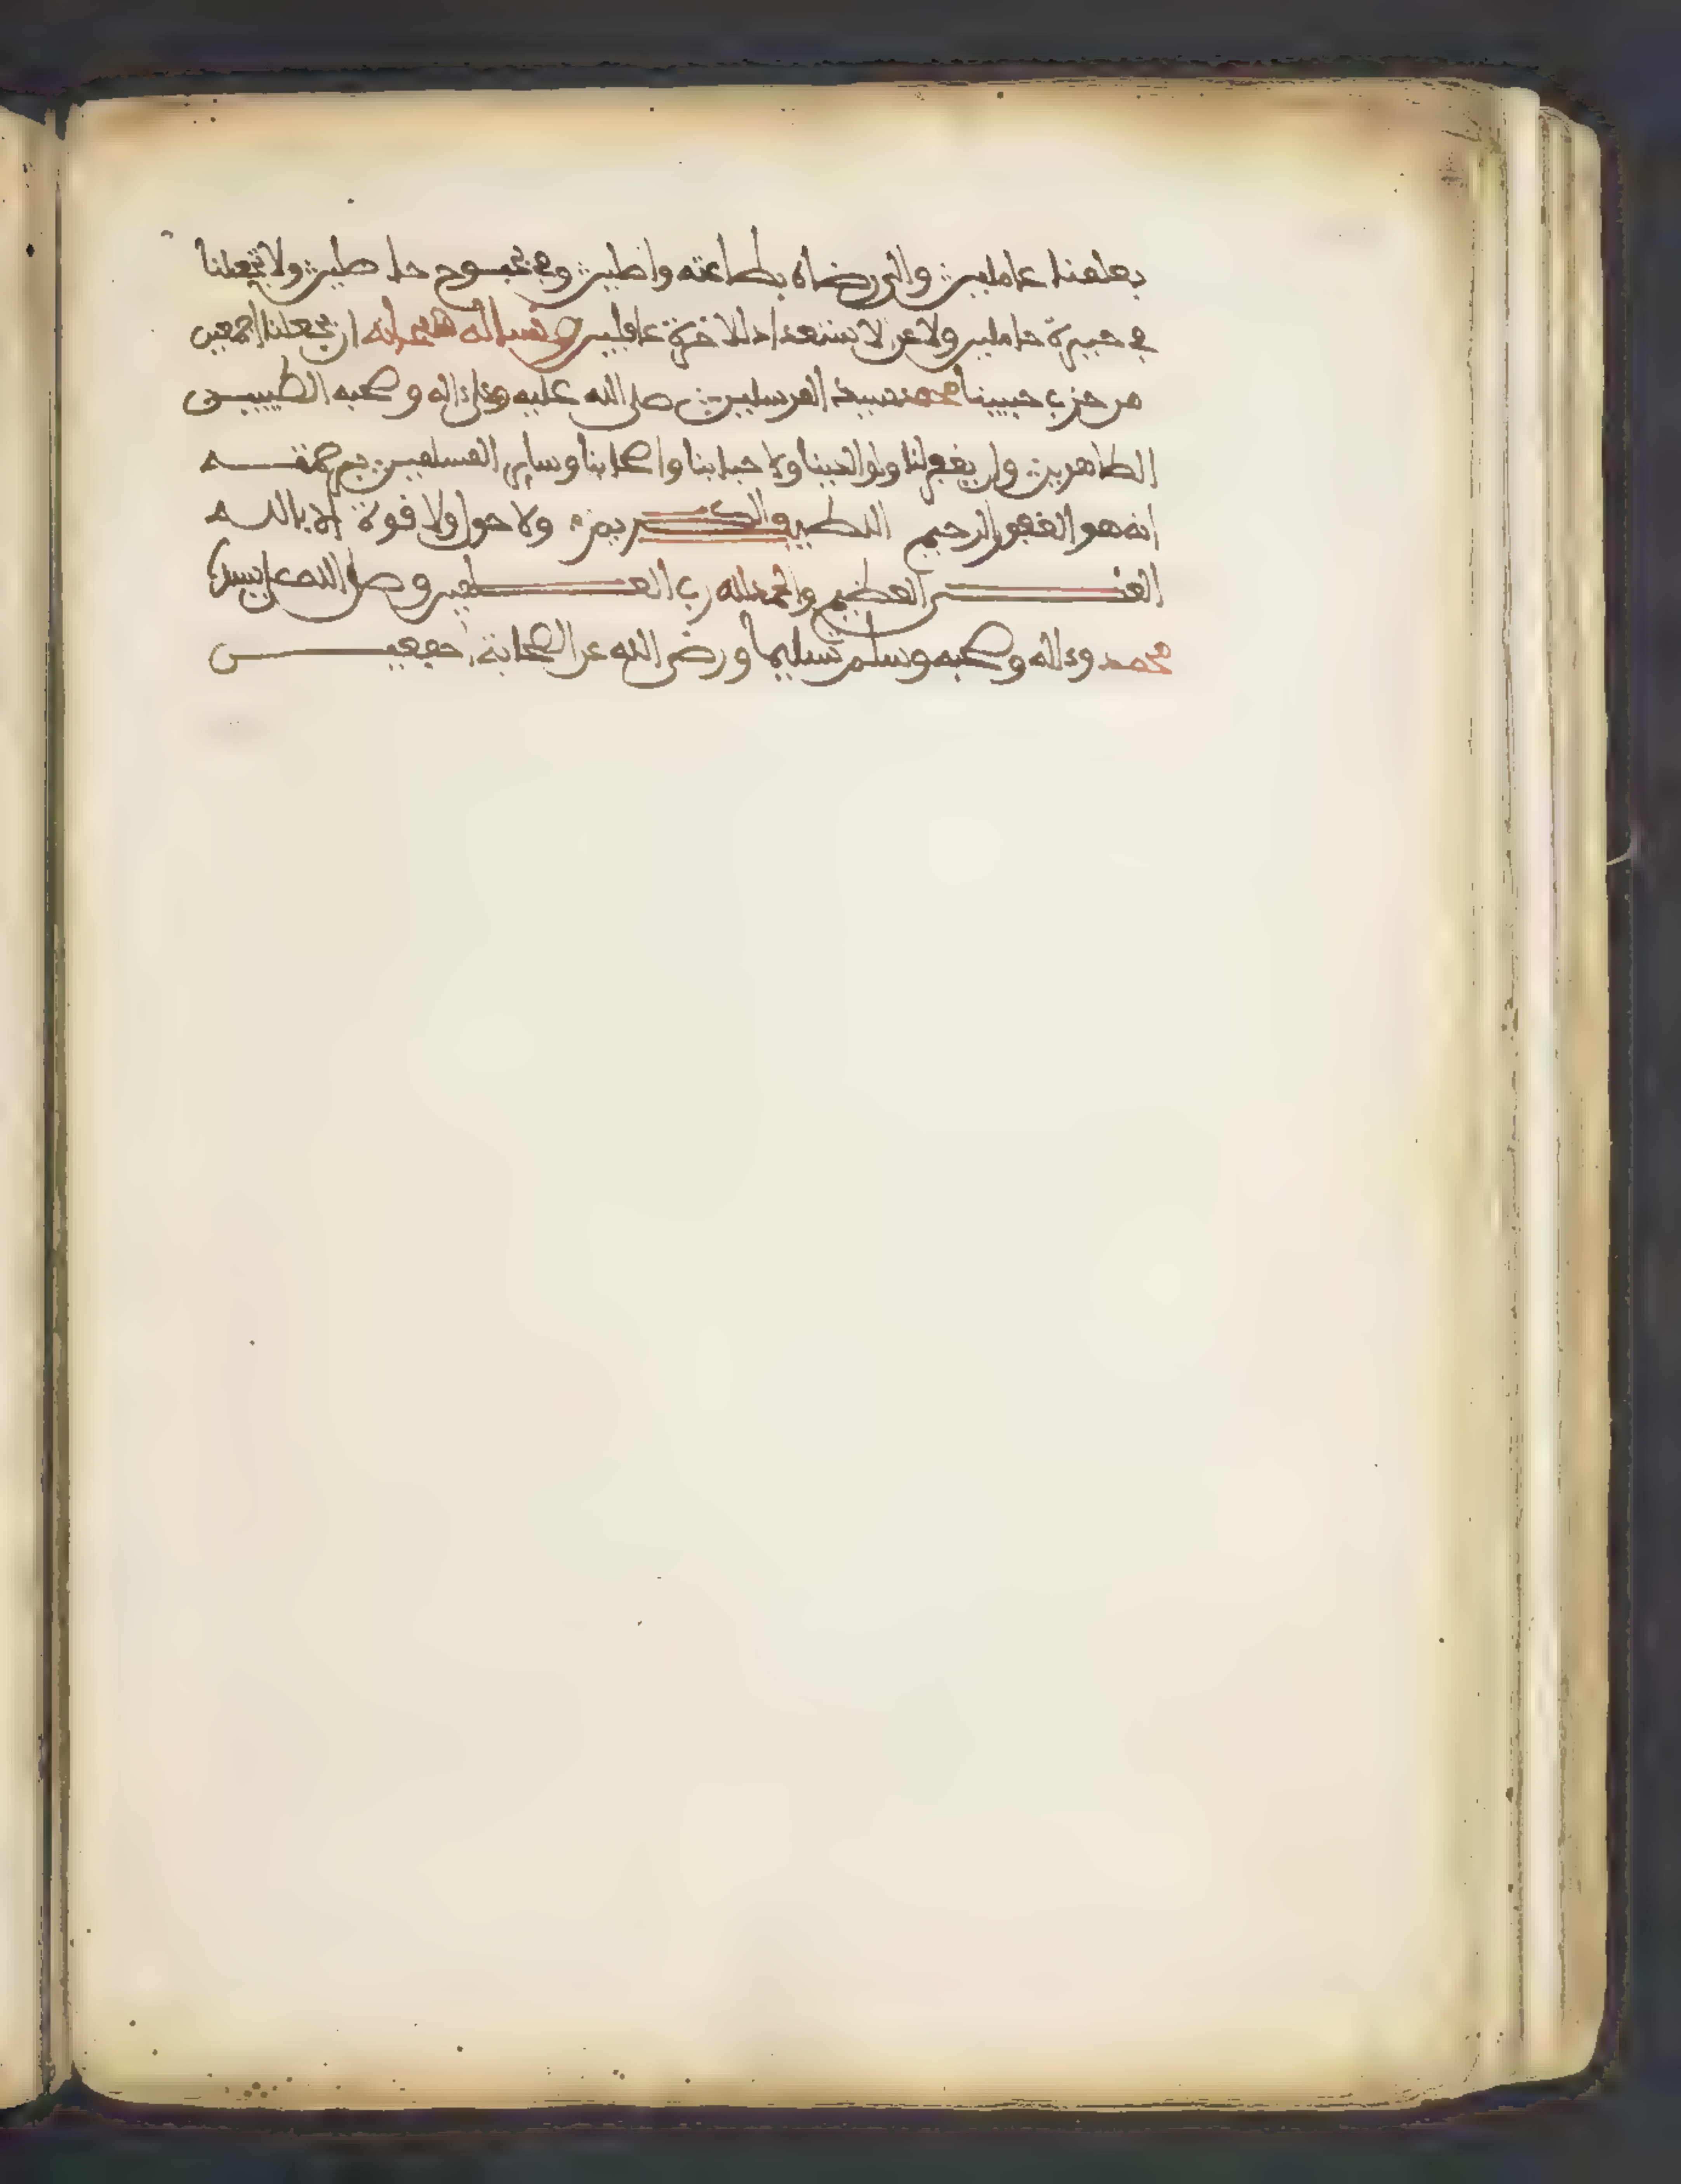 بعلمنا عاملين والى رضاه بطاعته واصلين وفي حاصلين ولا تجعلنا
في حيرة حاملين ولا عن الاستعداد للاخرة غافلين ونساله سبحانه ان يجعلنا اجمعين
من حزب حبيبنا محمد سيد المرسلين صلى الله عليه وعلى ءاله وصحبه الطيبين
الطاهرين وان يغفر لنا ولوالدينا ولاحبابنا واصحابنا وساير المسلمين برحمته
انه هو الغفور الرحيم اللطيف الكريم ولا حول ولا قوة الا بالله
العلي العظيم والحمد لله رب العلمين وصلى الله على سيدنا
محمد وءاله وصحبه وسلم تسليما ورضي الله عن الصحابة اجمعين